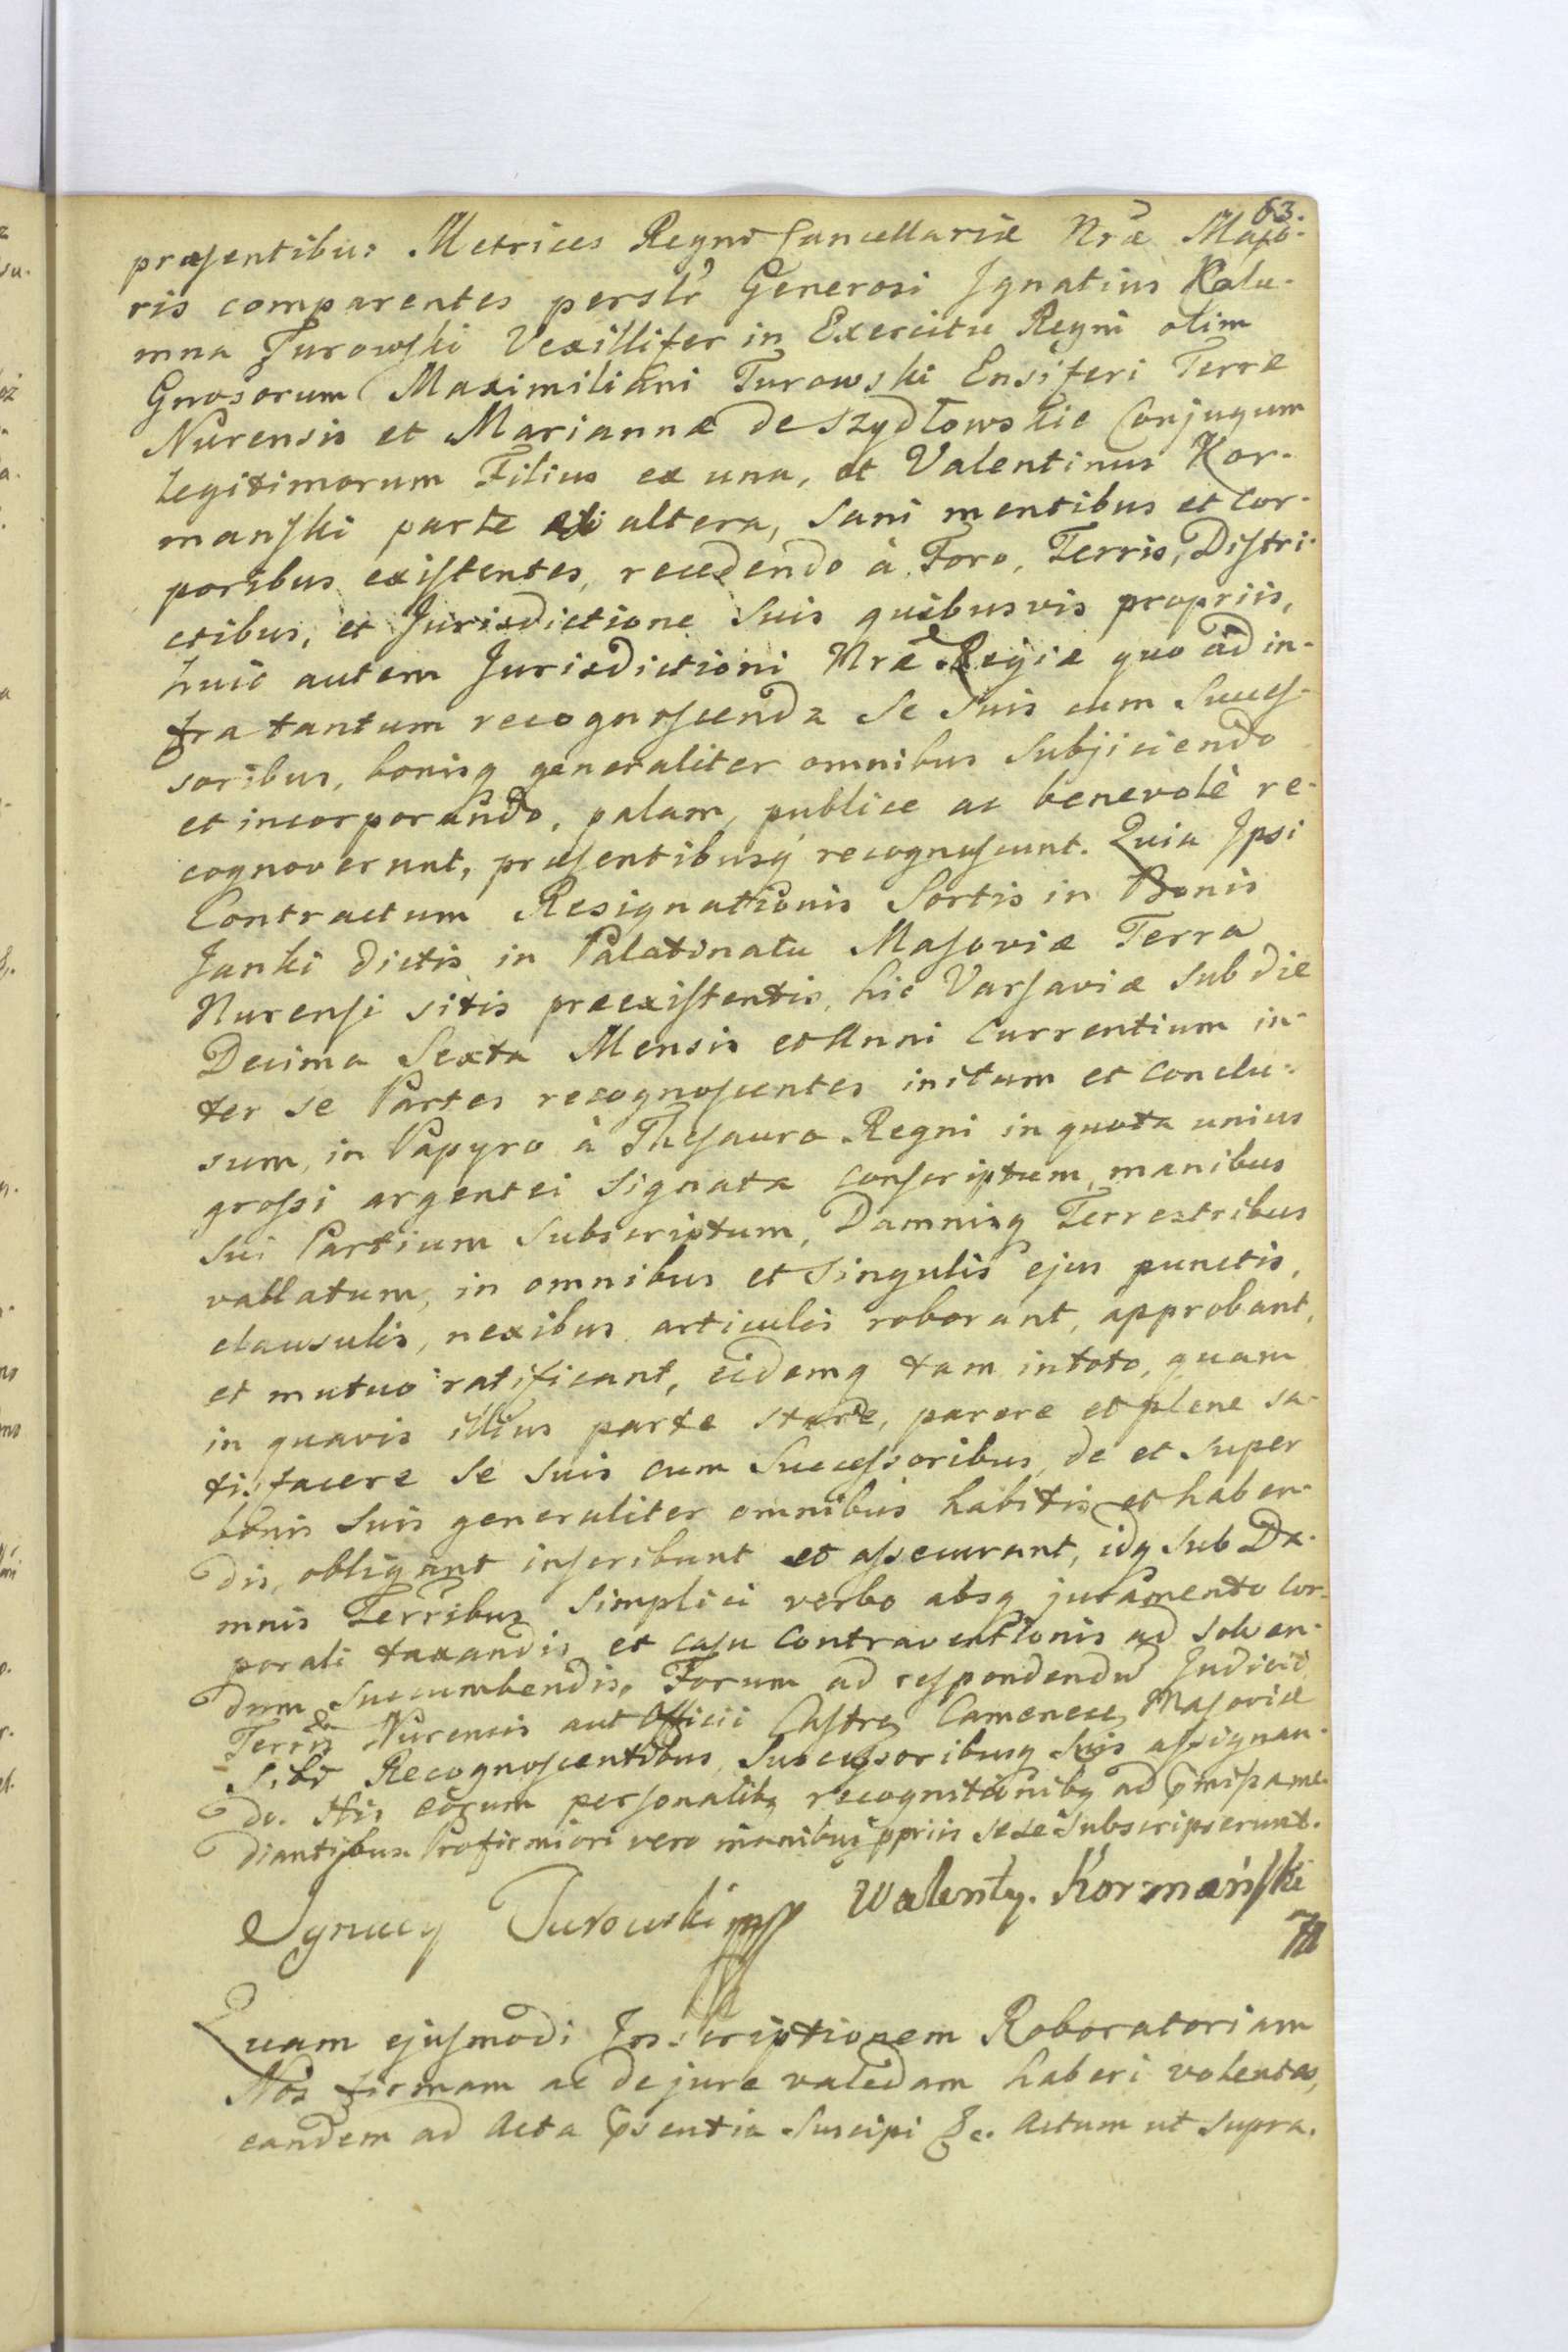 63.
præsentibus Metrices Regni Cancellariæ Nræ Majo-
ris comparentes persĺr Generosi Ignatius Kolu-
mna Turowski Vexillifer in Exercitu Regni olim
Gnosorum Maximiliani Turowski Ensiferi Terræ
Nurensis et Mariannæ de Szydłowskie Conjugum
legitimorum Filius ex una, et Valentinus Kor-
manski parte ab altera, sani mentibus et cor-
poribus existentes, recedendo à Foro, Terris, Distri-
ctibus, et Jurisdictione suis quibusvis propriis,
huic autem Jurisdictioni Nræ Regiæ quo ad in-
fra tantum recognoscenda se suis cum Succes-
soribus, bonisq generaliter omnibus subjiciendo
et incorporando, palam, publice ac benevolè re-
cognoverunt, præsentibusq recognoscunt. Quia Ipsi
Contractum Resignationis Sortis in Bonis
Janki dictis in Palatinatu Masoviæ Terra
Nurensi sitis præexistentis, hic Varsaviæ sub die
Decima Sexta Mensis et Anni currentium in-
ter se Partes recognoscentes initum et conclu-
sum, in Papyro à Thesauro Regni in quota unius
grossi argentei signata conscriptum, manibus
sui Partium subscriptum, Damnisq Terrestribus
vallatum, in omnibus et singulis ejus punctis,
clausulis, nexibus articulis roborant, approbant,
et mutuo ratificant, eidemq tam in toto, quam
in quavis illius parte stare, parere et plene sa-
tisfacere se suis cum Successoribus, de et super
bonis suis generaliter omnibus habitis et haben-
dis, obligant inscribunt et assecurant, idq sub Da-
mnis Terribus simplici verbo absq juramento cor-
porali taxandis et casu contraventionis ad solven-
dum succumbendis. Forum ad respondendũ Judicii
Terris Nurensis aut Officii Castren Camenecen Masoviæ
sibi Recognoscentibus, Successoribusq suis assignan-
do. His eorum personalibq recognitionibq ad pmissa me-
diantibus. Pro firmiori vero manibus ppriis sese subscripserunt.
Ignacy Turowski mpp Walenty. Kormański
Quam ejusmodi Inscriptionem Roboratoriam
Nos firmam ac de jure validam haberi volentes,
eandem ad Acta psentia suscipi &c. Actum ut supra.